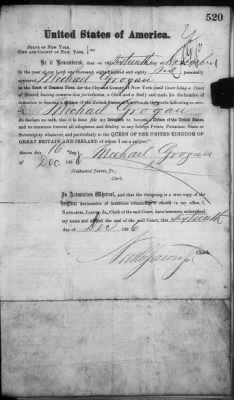 520
United States of America.
STATE OF NEW YORK,
CITY AND COUNTY OF NEW YORK, ss:
Be it Remembered, that on
In the year of our Lord one thousand eight hundred and eighty six personally
appeared Michael Grogan
in the Court of Common Pleas for the City and County of New York (said Court being a Court of
Record, having common law jurisdiction, a Clerk and a Seal,) and made his declaration of
intention to become a citizen of the United States of America, in the words following, to wit:
I, Michael Grogan
do declare on oath, that it is bona fide my intention to become a Citizen of the United States,
and to renounce forever all allegiance and fidelity to any foreign Prince, Potentate, State or
Sovereignty whatever, and particularly to the QUEEN OF THE UNITED KINGDOM OF
GREAT BRITAIN AND IRELAND of whom I am a subject.
Sworn this 16
day of Dec 1886 Michael Grogan
Nathaniel Jarvis, Jr.,
Clerk.
In Attestation Whereof, and that the foregoing is a true copy of the
original declaration of intention remaining of record in my office, I,
NATHANIEL JARVIS, JR., Clerk of the said Court, have hereunto subscribed
my name and affixed the seal of the said Court, this Sixteenth
day of Dec 1886
Clerk.